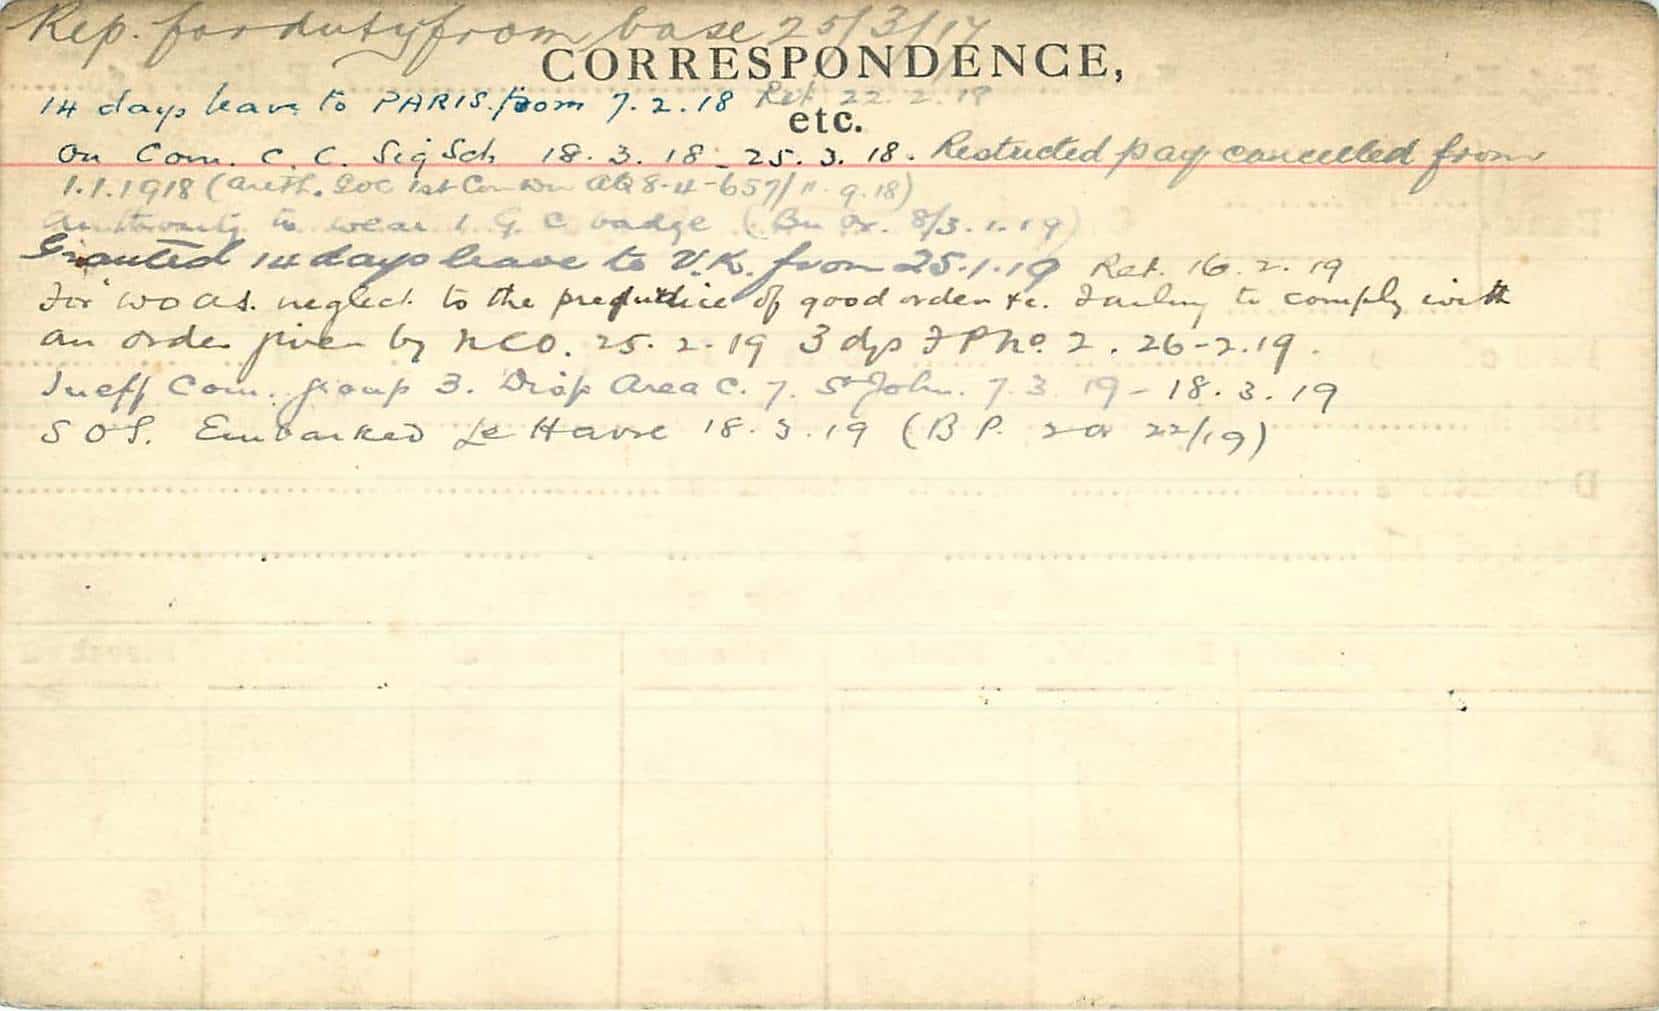 Rep. for duty from base 25/3/17
CORRESPONDENCE,
14 days leave to PARIS. from 7.2.18 Ret. 22.2.18
etc.
On Com. C. C. Sig Sch 18.3.18 - 25.3.18. Restricted pay cancelled from
1.1.1918 (Auth. GOC 1st Can Dvn AQ 8-4-657/11.9.18)
Authority to wear 1 G. C badge (Bn Or. 8/3.1.19)
Granted 14 days leave to U.K. from 25.1.19 Ret. 16.2.19
For WOAS. neglect to the prejudice of good order &c. Failing to comply with
an order given by NCO. 25.2.19 3 dys F P No. 2. 26-2.19.
Ineff Com. group 3. Disp Area C. 7. St John. 7.3.19 - 18.3.19
SOS. Embarked Le Havre 18.3.19 (B P. 2 Or 22/19)